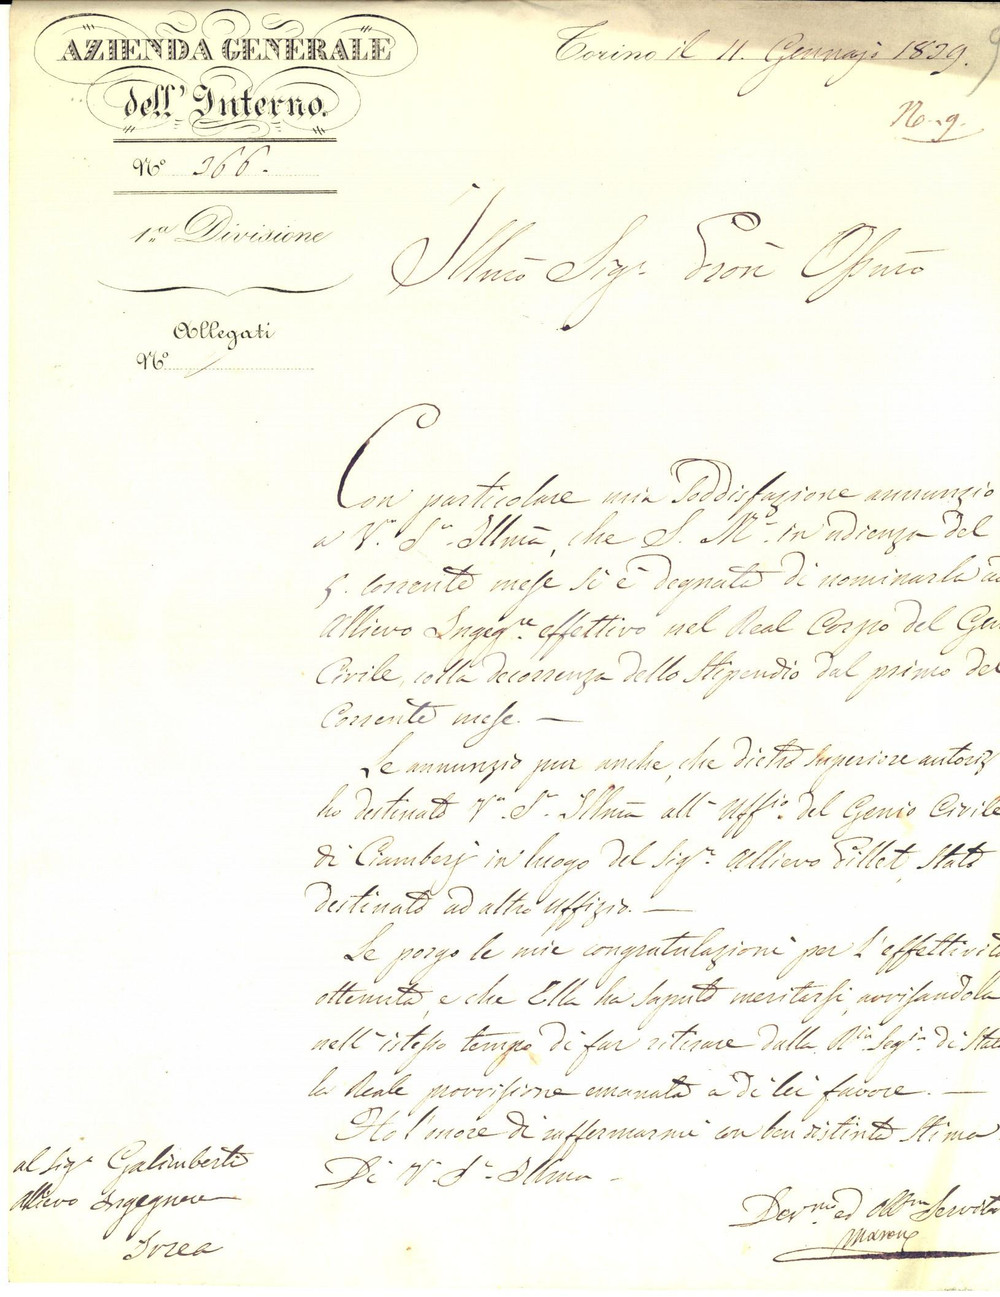 AZIENDA GENERALE
dell'Interno.
Nº 366.
1.ª Divisione
Allegati
Nº
Torino il 11. Gennajo 1839.
N. 9.
Illmo Sigr. Pron Ossmo
Con particolare mia Soddisfazione annunzio
a V.ª S.ª Illma, che S. M.ª in udienza del
5. corrente mese si è degnata di nominarla ad
Allievo Ingeg.re effettivo nel Real Corpo del Gen
Civile, colla decorrenza dello Stipendio dal primo del
Corrente mese. —
Le annunzio pur anche, che dietro Superiore autoriz
ho destinato V.ª S.ª Illma all' Uffio. del Genio Civile
di Ciamberj in luogo del Sigr. Allievo Pillet, Stato
destinato ad altro Uffizio. —
Le porgo le mie congratulazioni per l'effettività
ottenuta, e che Ella ha Saputo meritarsi, avvisandola
nell' istesso tempo di far ritirare dalla R.ia Seg.ia di Stato
la Reale provvisione emanata a di lei favore. —
Ho l'onore di raffermarmi con ben distinta Stima
Di V.ª S.ª Illma
Dev.mo ed Obb.mo Servito
al Sigr. Galimberti
Allievo Ingegnere
Ivrea